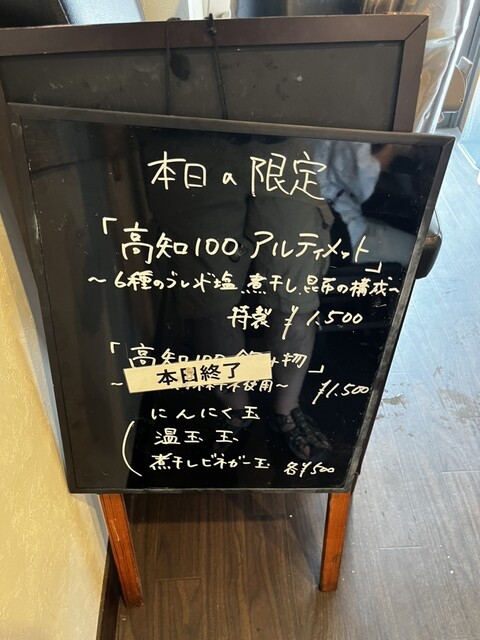 本日の限定
「高知100アルティメット」
〜6種のブレンド塩、煮干し、昆布の構成〜
特製 ¥1.500
「高知100
本日終了
使用〜 ¥1.500
にんにく玉
温玉 玉
煮干しビネガー玉 各¥500